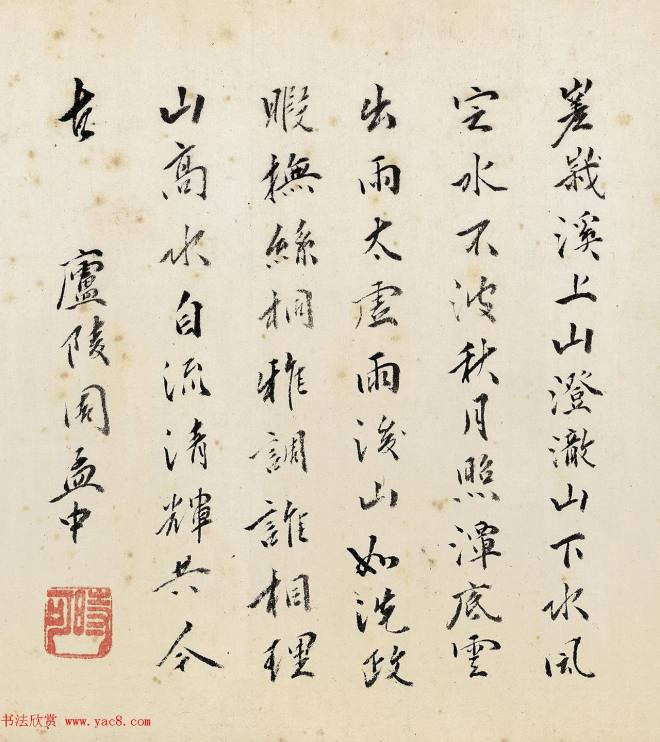 嵳峩溪上山澄澈山下水風
定水不波秋月照潭底雲
出雨太虛雨後山如洗政
暇撫絲桐雅調誰相理
山高水自流清輝共今
古 廬陵周孟中
時可
书法欣赏 www.yac8.com